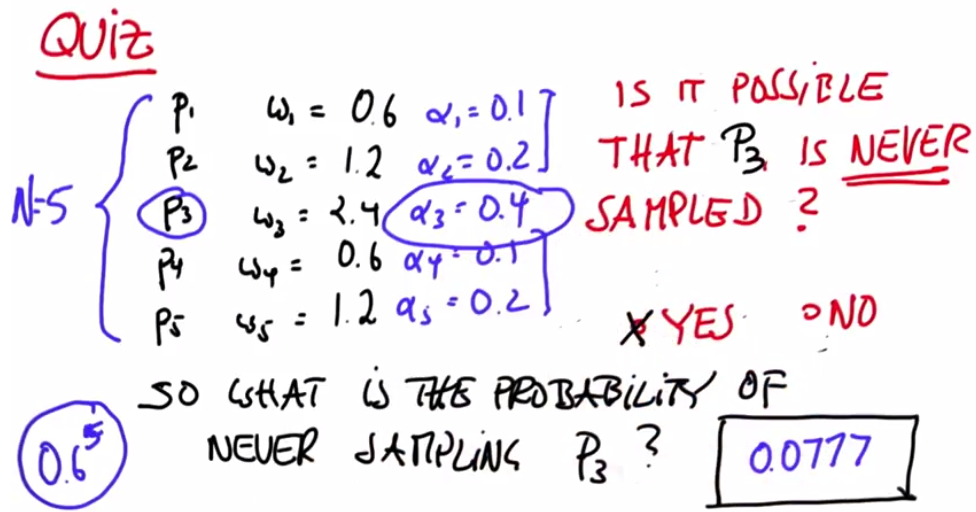 QUIZ
P1 ω1 = 0.6 α1 = 0.1
P2 ω2 = 1.2 α2 = 0.2
N=5
P3 ω3 = 2.4 α3 = 0.4
P4 ω4 = 0.6 α4 = 0.1
P5 ω5 = 1.2 α5 = 0.2
IS IT POSSIBLE
THAT P3 IS NEVER
SAMPLED ?
X YES O NO
SO WHAT IS THE PROBABILITY OF
NEVER SAMPLING P3 ?
0.6^5
0.0777